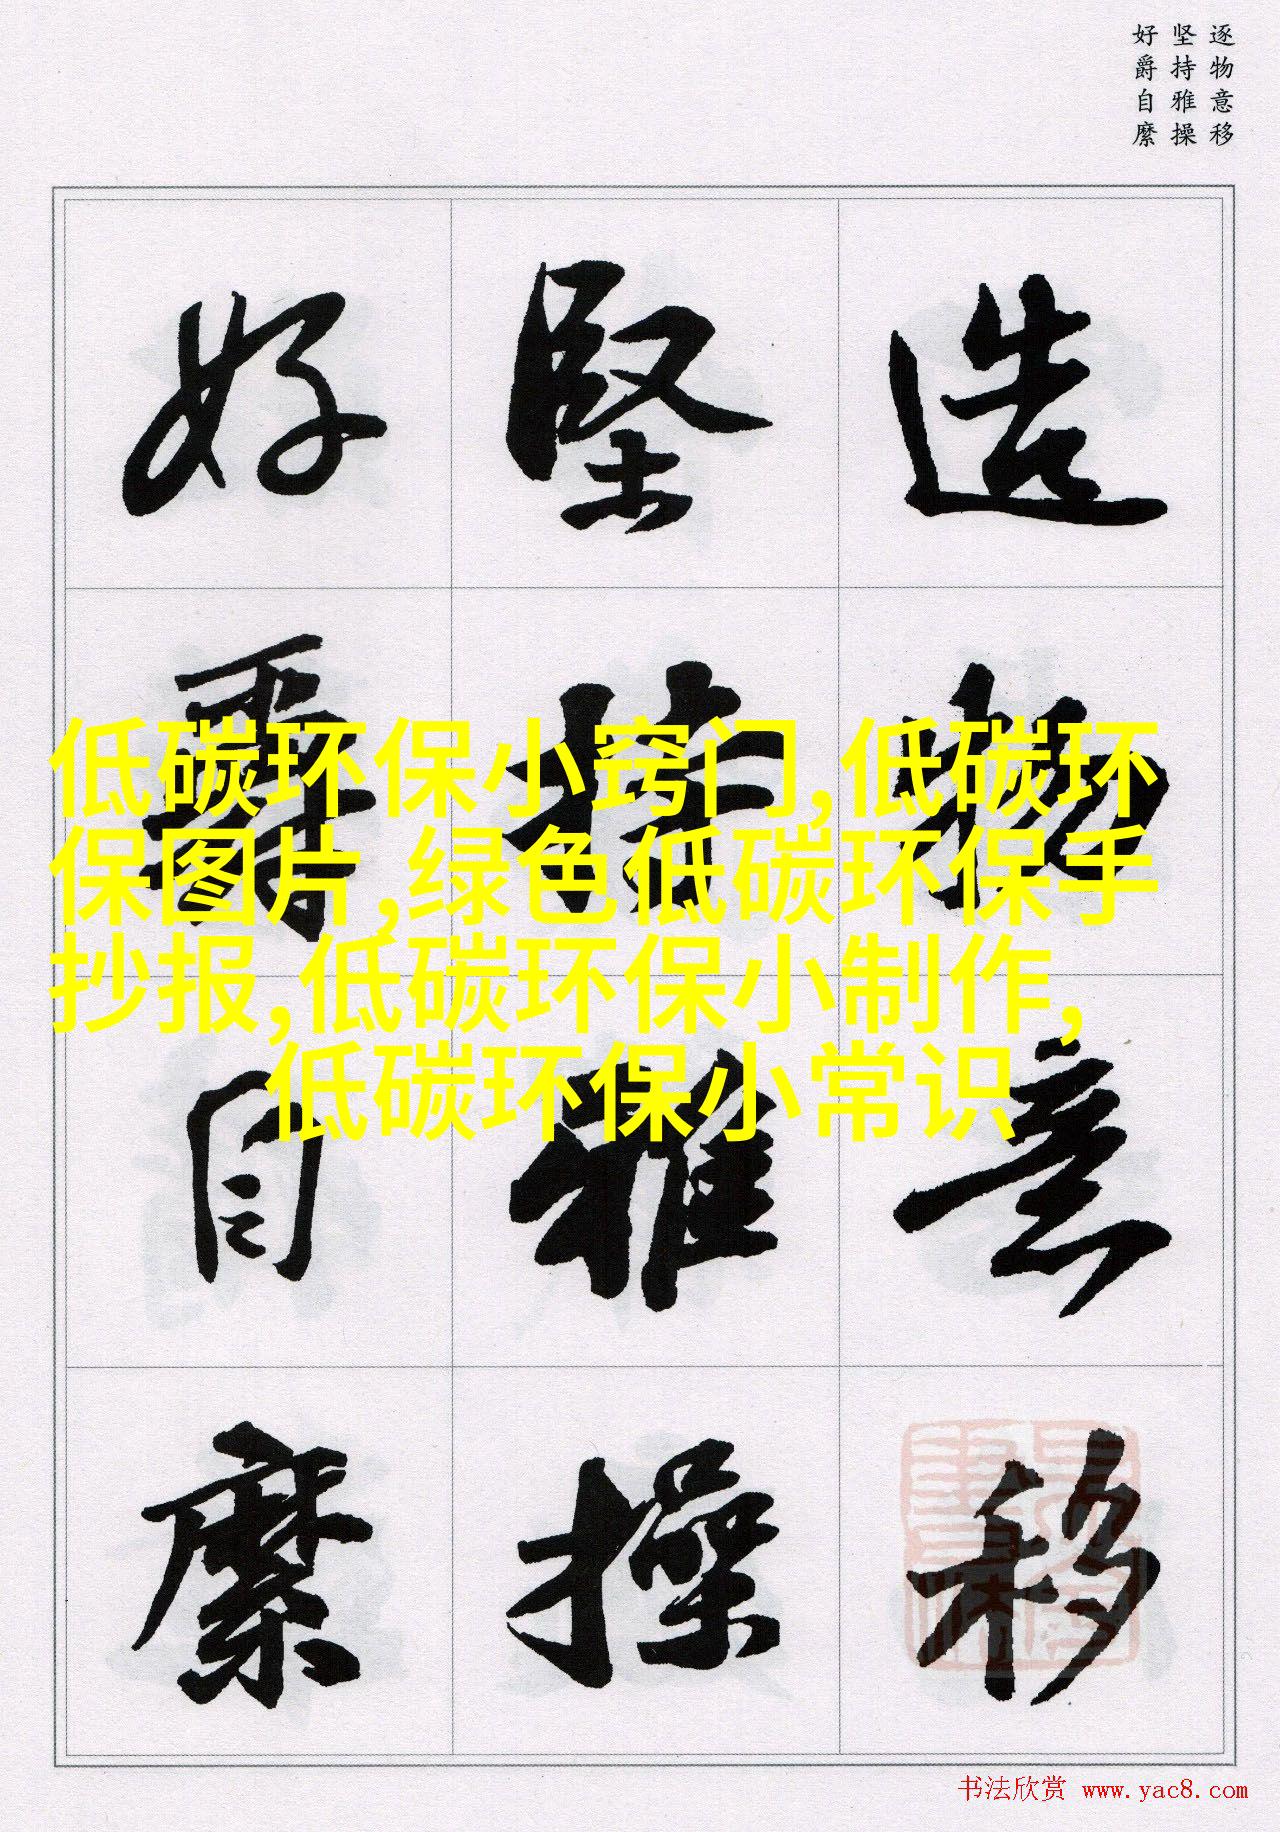 逐物意移
坚持雅操
好爵自縻
造物意移
堅持雅操
好爵自縻
低碳环保小窍门,低碳环
保图片,绿色低碳环保手
抄报,低碳环保小制作,
低碳环保小常识
书法欣赏 www.yac8.com